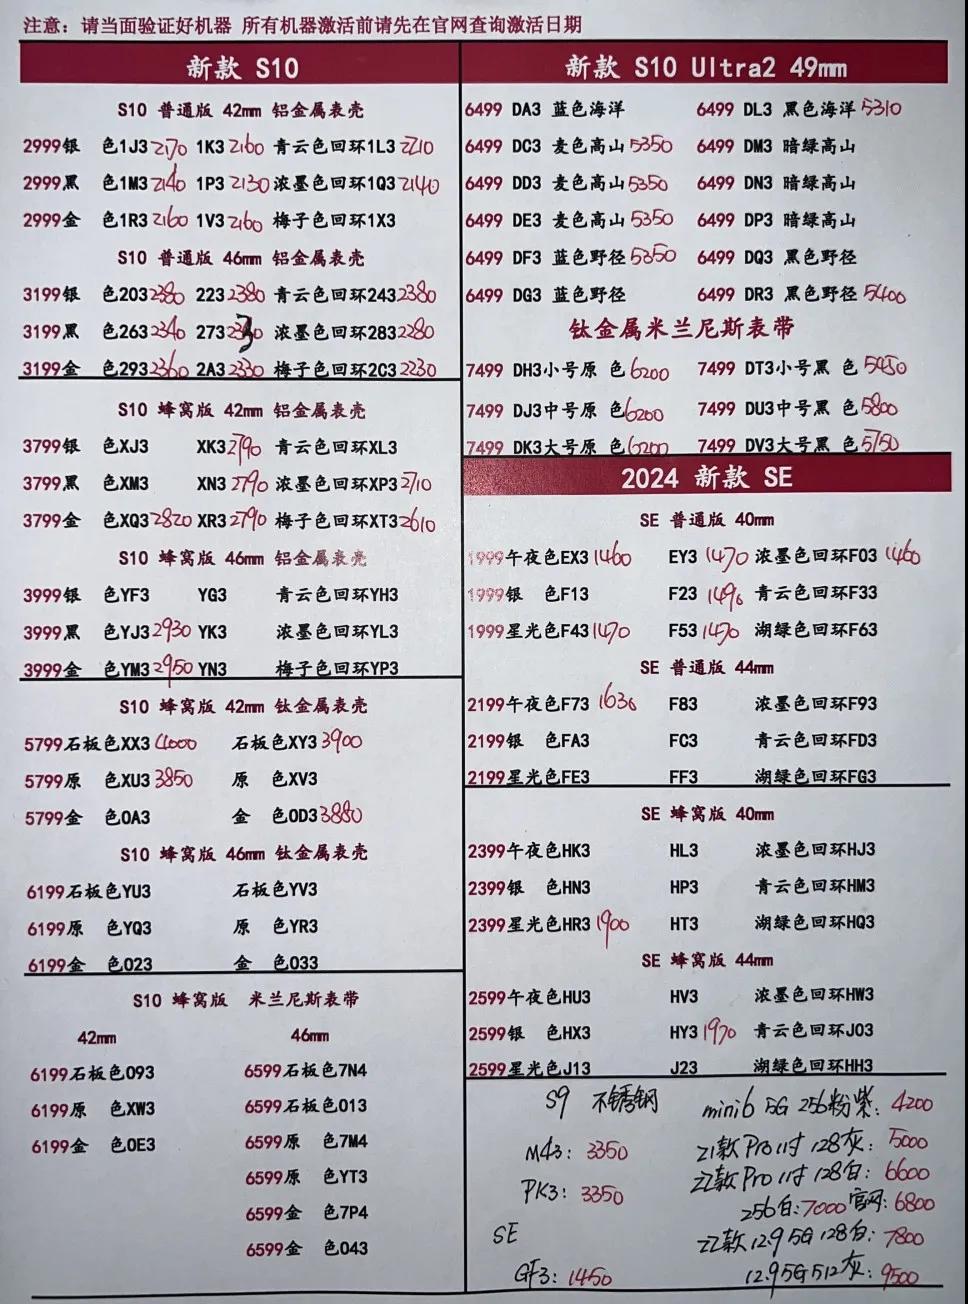 注意：请当面验证好机器 所有机器激活前请先在官网查询激活日期
新款 S10
S10 普通版 42mm 铝金属表壳
2999银 色1J3 2170 1K3 2160 青云色回环1L3 2210
2999黑 色1M3 2140 1P3 2130 浓墨色回环1Q3 2140
2999金 色1R3 2160 1V3 2160 梅子色回环1X3
S10 普通版 46mm 铝金属表壳
3199银 色203 2380 223 2380 青云色回环243 2380
3199黑 色263 2340 273 浓墨色回环283 2280
3199金 色293 2360 2A3 2330 梅子色回环2C3 2230
S10 蜂窝版 42mm 铝金属表壳
3799银 色XJ3 XK3 2790 青云色回环XL3
3799黑 色XM3 XN3 2790 浓墨色回环XP3 2710
3799金 色XQ3 2820 XR3 2790 梅子色回环XT3 2610
S10 蜂窝版 46mm 铝金属表壳
3999银 色YF3 YG3 青云色回环YH3
3999黑 色YJ3 2930 YK3 浓墨色回环YL3
3999金 色YM3 2950 YN3 梅子色回环YP3
S10 蜂窝版 42mm 钛金属表壳
5799石板色XX3 4000 石板色XY3 3900
5799原 色XU3 3850 原 色XV3
5799金 色0A3 金 色0D3 3880
S10 蜂窝版 46mm 钛金属表壳
6199石板色YU3 石板色YV3
6199原 色YQ3 原 色YR3
6199金 色023 金 色033
S10 蜂窝版 米兰尼斯表带
42mm 46mm
6199石板色093 6599石板色7N4
6199原 色XW3 6599石板色013
6199金 色0E3 6599原 色7M4
6599原 色YT3
6599金 色7P4
6599金 色043
新款 S10 Ultra2 49mm
6499 DA3 蓝色海洋 6499 DL3 黑色海洋 5310
6499 DC3 麦色高山 5350 6499 DM3 暗绿高山
6499 DD3 麦色高山 5350 6499 DN3 暗绿高山
6499 DE3 麦色高山 5350 6499 DP3 暗绿高山
6499 DF3 蓝色野径 5350 6499 DQ3 黑色野径
6499 DG3 蓝色野径 6499 DR3 黑色野径 5400
钛金属米兰尼斯表带
7499 DH3小号原 色 6200 7499 DT3小号黑 色 5450
7499 DJ3中号原 色 6200 7499 DU3中号黑 色 5800
7499 DK3大号原 色 6200 7499 DV3大号黑 色 5750
2024 新款 SE
SE 普通版 40mm
1999午夜色EX3 1460 EY3 1470 浓墨色回环F03 1460
1999银 色F13 F23 1490 青云色回环F33
1999星光色F43 1470 F53 1470 湖绿色回环F63
SE 普通版 44mm
2199午夜色F73 1630 F83 浓墨色回环F93
2199银 色FA3 FC3 青云色回环FD3
2199星光色FE3 FF3 湖绿色回环FG3
SE 蜂窝版 40mm
2399午夜色HK3 HL3 浓墨色回环HJ3
2399银 色HN3 HP3 青云色回环HM3
2399星光色HR3 1900 HT3 湖绿色回环HQ3
SE 蜂窝版 44mm
2599午夜色HU3 HV3 浓墨色回环HW3
2599银 色HX3 HY3 1970 青云色回环J03
2599星光色J13 J23 湖绿色回环HH3
S9 不锈钢
M43：3350
PK3：3350
SE
GF3：1450
mini6 5G 256粉紫：4200
21款Pro 11寸 128灰：5000
22款Pro 11寸 128白：6600
256白：7000 官网：6800
22款 12.9 5G 128白：7800
12.9 5G 512灰：9500